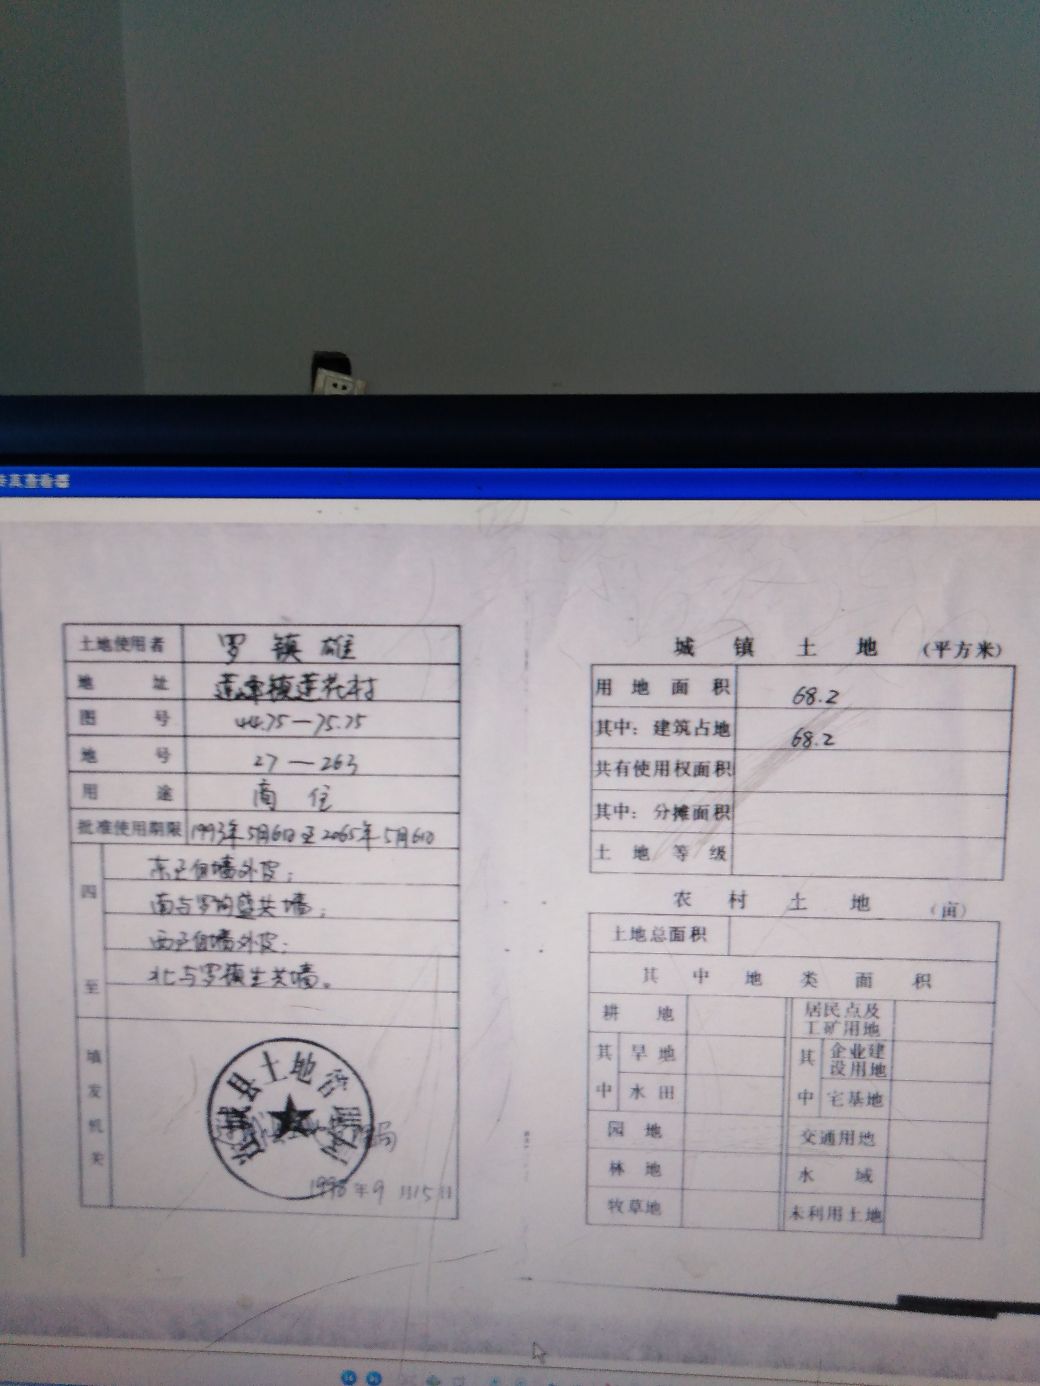 传真查看器
土地使用者 罗镇雄
地址 莲峰镇莲花村
图号 44.75—75.75
地号 27—263
用途 商住
批准使用期限 1993年5月6日至2065年5月6日
四至
东至自墙外皮；
南与罗均盛共墙；
西至自墙外皮；
北与罗镇生共墙。
填发机关
县土地管
局
年9月15日
城镇土地（平方米）
用地面积 68.2
其中：建筑占地 68.2
共有使用权面积
其中：分摊面积
土地等级
农村土地（亩）
土地总面积
其中地类面积
耕地 居民点及工矿用地
其中 旱地 其中 企业建设用地
水田 宅基地
园地 交通用地
林地 水域
牧草地 未利用土地